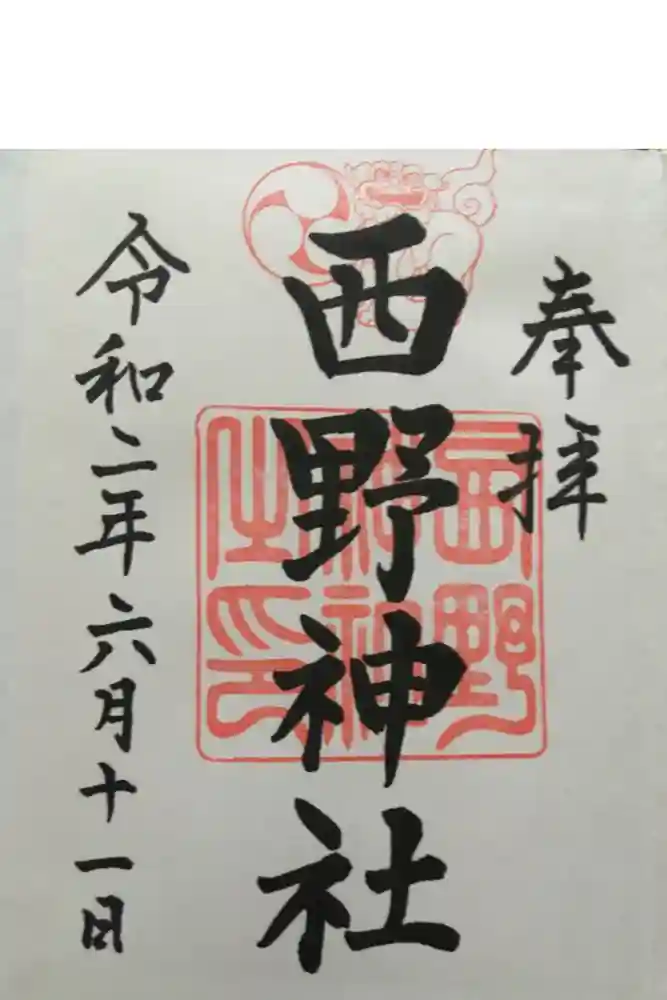 奉拝
西野神社
西野神社之印
令和二年六月十一日